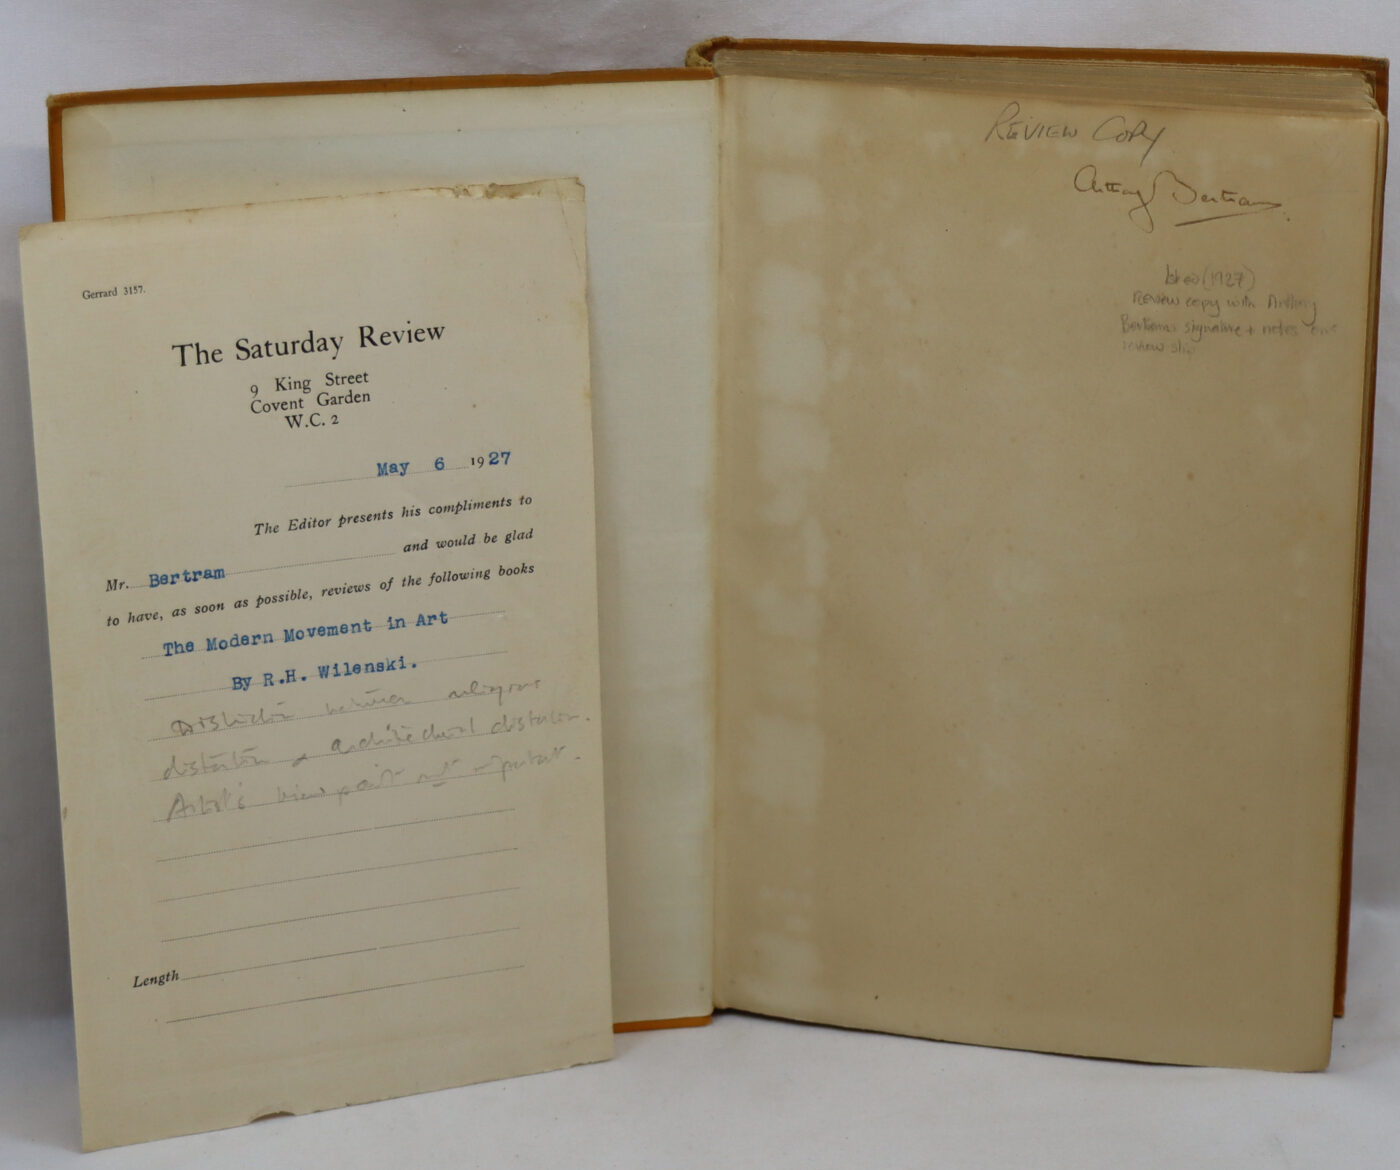 Gerrard 3157.
The Saturday Review
9 King Street
Covent Garden
W.C. 2
May 6 1927
The Editor presents his compliments to
Mr. Bertram and would be glad
to have, as soon as possible, reviews of the following books
The Modern Movement in Art
By R.H. Wilenski.
Distinction between religious
distortion & architectural distortion.
Artist's view point not important.
Length
REVIEW COPY
Anthony Bertram
1st ed (1927)
Review copy with Anthony
Bertram's signature + notes on
review slip